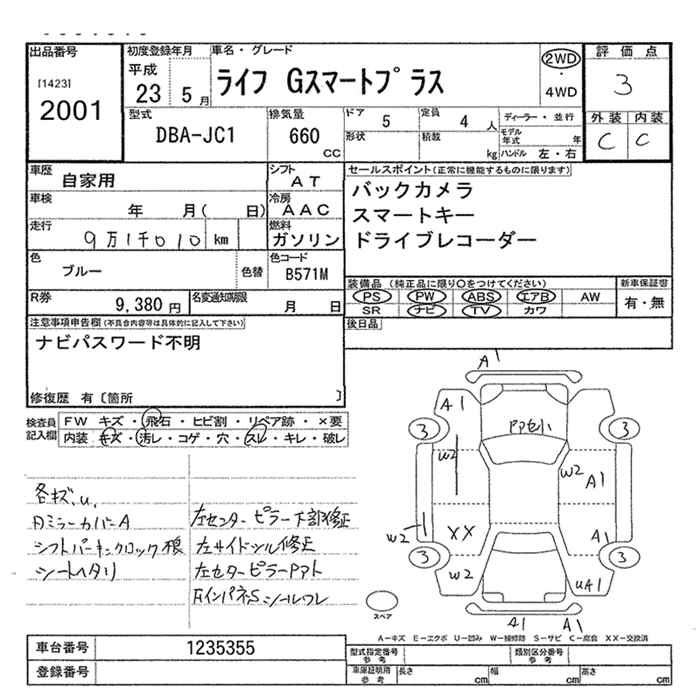 出品番号
[1423]
2001
初度登録年月
平成
23 5 月
車名・グレード
ライフ Gスマートプラス
2WD
・
4WD
評価点
3
型式
DBA-JC1
排気量
660
CC
ドア 5
定員 4 人
形状
積載 kg
ディーラー・並行
モデル年式 年
ハンドル 左・右
外装 内装
C C
車歴
自家用
シフト
AT
車検
年 月( 日)
冷房
AAC
走行
9万1千010 km
燃料
ガソリン
色
ブルー
色替
色コード
B571M
R券
9,380 円
名変通知期限
月 日
セールスポイント(正常に機能するものに限ります)
バックカメラ
スマートキー
ドライブレコーダー
装備品(純正品に限り○をつけてください)
新車保証書
PS PW ABS エアB AW
有・無
SR ナビ TV カワ
後日品
注意事項申告欄(不具合内容等は具体的に記入して下さい)
ナビパスワード不明
修復歴 有〔箇所 〕
検査員
記入欄
FW キズ・飛石・ヒビ割・リペア跡・×要
内装 キズ・汚レ・コゲ・穴・スレ・キレ・破レ
各キズ.u.
Rミラーカバー A
シートヘタリ
左センターピラー下部修正
左サイドシル修正
A1
A1
3
3
W2
W2
A1
XX
W2
A1
W2
3
3
UA1
A1
A1
スペア
A－キズ E－エクボ U－凹み W－補修跡 S－サビ C－腐食 XX－交換済
車台番号 1235355
登録番号
型式指定番号
参考
類別区分番号
参考
車庫証明用
参考
長さ cm
幅 cm
高さ cm